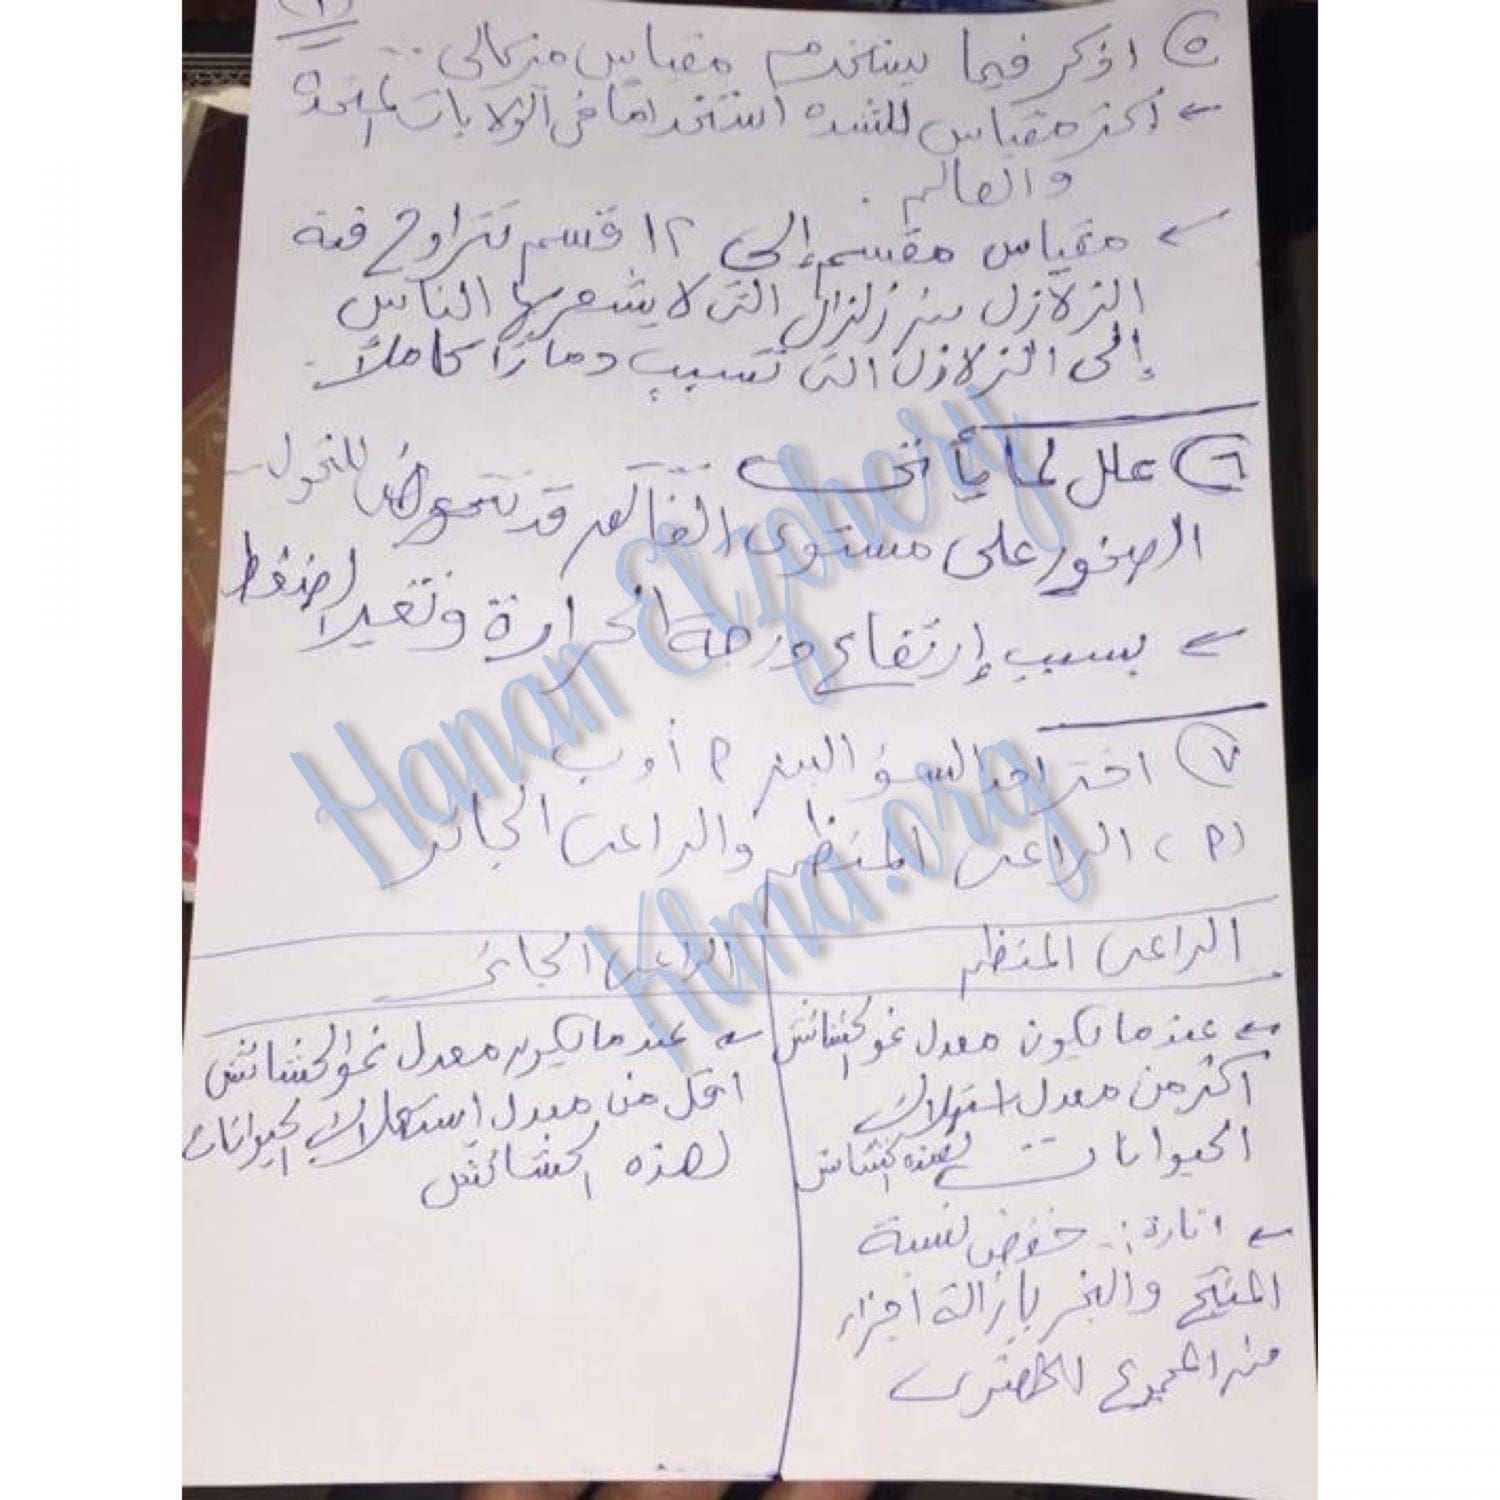 (٢)
٥) اذكر فيما يستخدم مقياس ميركالى ..
← أكثر مقياس للشدة استخداما فى الولايات المتحدة
والعالم .
← مقياس مقسم إلى ١٢ قسم تتراوح فيه
الزلازل من زلزال التى لا يشعر بها الناس
إلى الزلازل التى تسبب دمارًا كاملاً .
٦) علل لما يأتى
الصخور على مستوى الفالق قد تتعرض للتحول
← بسبب إرتفاع درجة الحرارة وتغير الضغط
٧) اختر احد السؤالين أ أو ب
(أ) الراعى المنتظم والراعى الجائر
الراعى المنتظم
الراعى الجائر
← عندما يكون معدل نمو الحشائش
أكثر من معدل استهلاك
الحيوانات لهذه الحشائش
← اثارة : خفض نسبة
المنتج والبخر بإزالة اجزاء
من المجموع الخضرى
← عندما يكون معدل نمو الحشائش
اقل من معدل إستهلاك الحيوانات
لهذه الحشائش
Hanan Elzohery
Klma.org